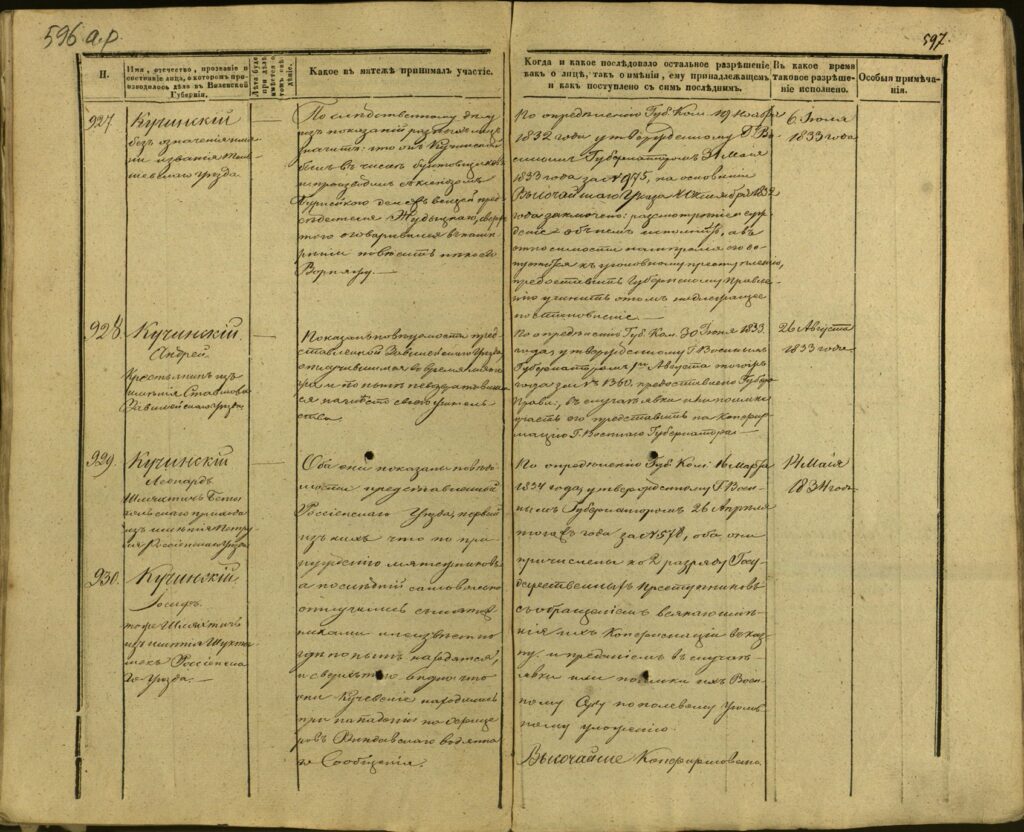 596 а.р.
597.
Н.
Имя, отечество, прозваніе и
состояніе лица, о которомъ про-
изводилось дѣло въ Виленской
Губерніи.
Какое въ мятежѣ принималъ участіе.
Когда и какое послѣдовало остальное разрѣшеніе
какъ о лицѣ, такъ о имѣніи, ему принадлежащемъ
и какъ поступлено съ симъ послѣднимъ.
Въ какое время
таковое разрѣше-
ніе исполнено.
Особыя примѣча-
нія.
927
Кучинскій
безъ означенія име-
ни и званія Тель-
шевскаго уѣзда.
По слѣдственному дѣлу
изъ показаній разныхъ лицъ
значится: что онъ Кучинскій
былъ въ числѣ бунтовщиковъ
и производилъ съ ксендзомъ
сверхъ
того оговаривался въ намѣ-
реніи повѣсить
По опредѣленію Губ. Ком. 19 Ноября
1832 года утвержденному Г. Во-
еннымъ Губернаторомъ 31 Маія
1833 года за № 1975, на основаніи
Высочайшаго Указа
года заключено:
относимости
къ уголовному преступленію,
предоставить Губернскому Правле-
нію учинить о томъ надлежащее
постановленіе.
6 Іюля
1833 года
928
Кучинскій
Андрей
Крестьянинъ изъ
имѣнія
Завилейскаго уѣзда
Показанъ по вѣдомости пред-
ставленной Завилейскаго Уѣзда,
отлучившимся во время мяте-
жа и по нынѣ невозвративши-
ся на мѣсто своего житель-
ства.
По опредѣленію Губ. Ком. 30 Іюня 1833
года, утвержденному Г. Военнымъ
Губернаторомъ 1го Августа того жъ
года за № 1360. предоставлено Губерн.
Правл., въ случаѣ явки или поимки
участь его представить на Конфир-
мацію Г. Военнаго Губернатора.
26 Августа
1833 года.
929.
Кучинскій
Леонардъ
Шляхтичъ Бето-
гольскаго прихода
изъ имѣнія
Россіенскаго уѣзда
Оба они показаны по вѣдо-
мости представленной
Россіенскаго Уѣзда, первый
изъ нихъ что по при-
нужденію мятежниковъ
а послѣдній самовольно
отлучились съ мятеж-
никами и неизвѣстно
гдѣ по нынѣ находятся,
и сверхъ того видно что
они Кучинскіе находились
при нападеніи на офице-
ровъ Виндавскаго водяна-
го Сообщенія.
По опредѣленію Губ. Ком. 16 Марта
1834 года, утвержденному Г. Воен-
нымъ Губернаторомъ 26 Апрѣля
того жъ года за № 578, оба они
причислены ко 2 разряду Госу-
дарственныхъ Преступниковъ
съ обращеніемъ всякаго имѣ-
нія ихъ Конфискаціи въ каз-
ну. и преданіемъ въ случаѣ
явки или поимки ихъ Воен-
ному Суду по полевому уголов-
ному уложенію.
Высочайше Конфирмовано
14 Маія
1834 года
930.
Кучинскій
Іосифъ.
тоже Шляхтичъ
изъ имѣнія
Россіенска-
го уѣзда.